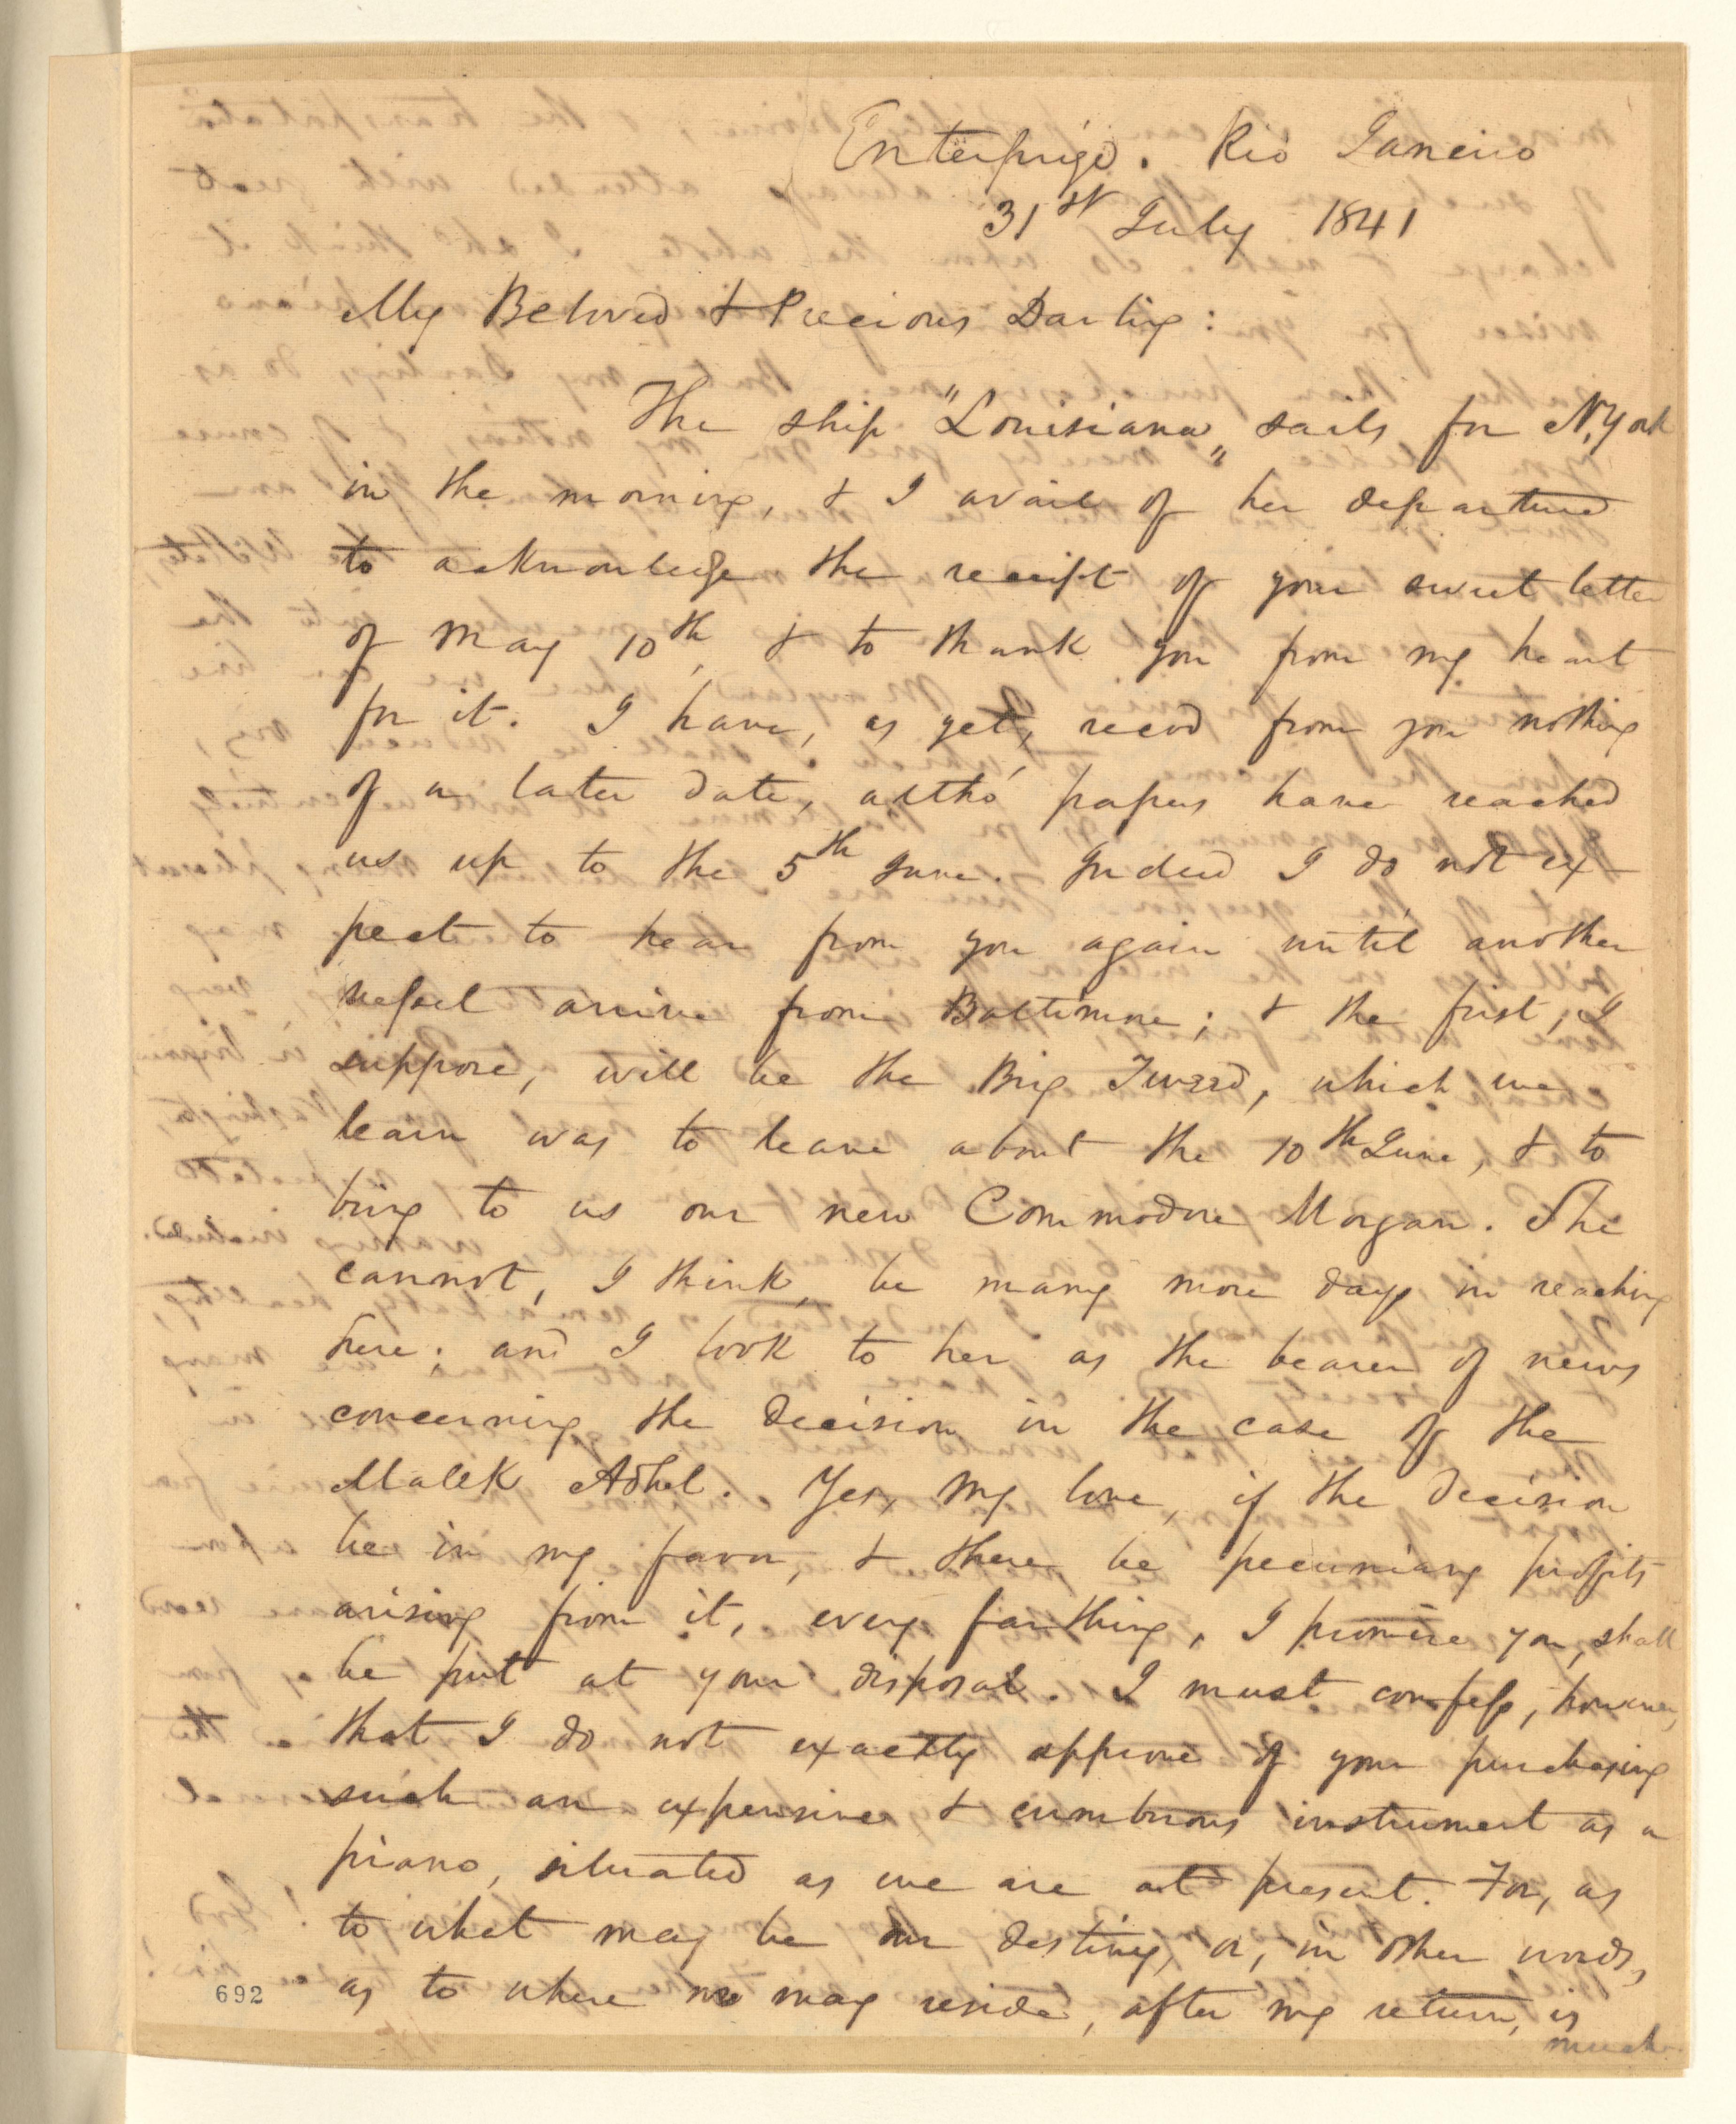 Enterprise. Rio Janeiro
31st July 1841
My Beloved & Precious Darling:
The ship "Louisiana" sails for N. York
in the morning, & I avail of her departure
to acknowledge the receipt of your sweet letter
of May 10th, & to thank you from my heart
for it. I have, as yet, recd from you nothing
of a later date, altho' papers have reached
us up to the 5th June. Indeed I do not ex-
pect to hear from you again until another
vessel arrive from Baltimore; & the first, I
suppose, will be the Brig Tweed, which we
learn was to leave about the 10th June, & to
bring to us our new Commodore Morgan. She
cannot, I think, be many more days in reaching
here; and I look to her as the bearer of news
concerning the decision in the case of the
Malek Adhel. Yes, my love, if the decision
be in my favor, & there be pecuniary profits
arising from it, every farthing, I promise you, shall
be put at your disposal. I must confess, however,
that I do not exactly approve of your purchasing
such an expensive & cumbrous instrument as a
piano, situated as we are at present. For, as
to what may be our destiny, or, in other words,
as to where we may reside, after my return, is
much
692